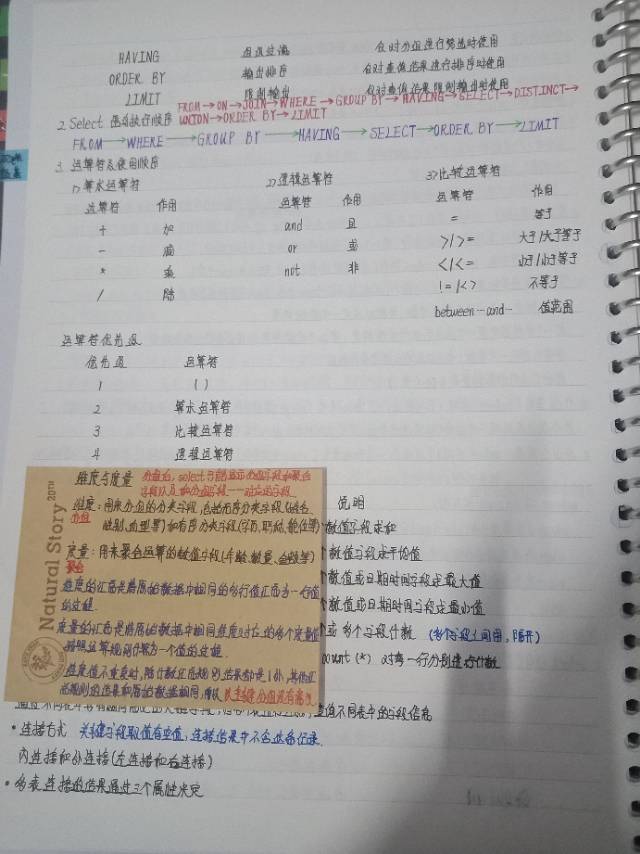 HAVING 组级过滤 仅对分组进行筛选时使用
ORDER BY 输出排序 仅对查询结果进行排序时使用
LIMIT 限制输出 仅对查询结果限制输出时使用
FROM→ON→JOIN→WHERE→GROUP BY→HAVING→SELECT→DISTINCT→
2. Select 语句执行顺序 UNION→ORDER BY→LIMIT
FROM→WHERE→GROUP BY→HAVING→SELECT→ORDER BY→LIMIT
3. 运算符及使用顺序
1) 算术运算符 2) 逻辑运算符 3) 比较运算符
运算符 作用 运算符 作用 运算符 作用
+ 加 and 且 = 等于
- 减 or 或 >/>= 大于/大于等于
* 乘 not 非 </<= 小于/小于等于
/ 除 !=/<> 不等于
between--and- 值范围
运算符优先级
优先级 运算符
1 ( )
2 算术运算符
3 比较运算符
4 逻辑运算符
Natural Story 20TH
维度与度量 分组后,select只能显示分组字段和聚合
字段以及和分组字段一一对应的字段
维度:用来分组的分类字段,包括无序分类字段(姓名、
分组
性别、血型等)和有序分类字段(学历、职称、能位等)
度量:用来聚合运算的数值字段(年龄、数量、金额等)
聚合
维度的汇总是将原始数据中相同的多行值汇总为一行值
的过程.
度量的汇总是将原始数据中相同维度对应的多个度量值
按照运算规则计算为一个值的过程.
维度值不重复时,除计数汇总规则结果都是1外,其他汇
总规则的结果和原始数据相同,所以从主键分组没有意义
说明
数值字段求和
数值字段求平均值
数值或日期时间字段求最大值
数值或日期时间字段求最小值
或多个字段计数 (多个字段之间用,隔开)
count (*) 对每一行分别进行计数
查询不同表中的字段信息
• 连接方式 关键字段取值有空值,连接结果中不含此条记录.
内连接和外连接(左连接和右连接)
• 多表连接的结果通过三个属性决定